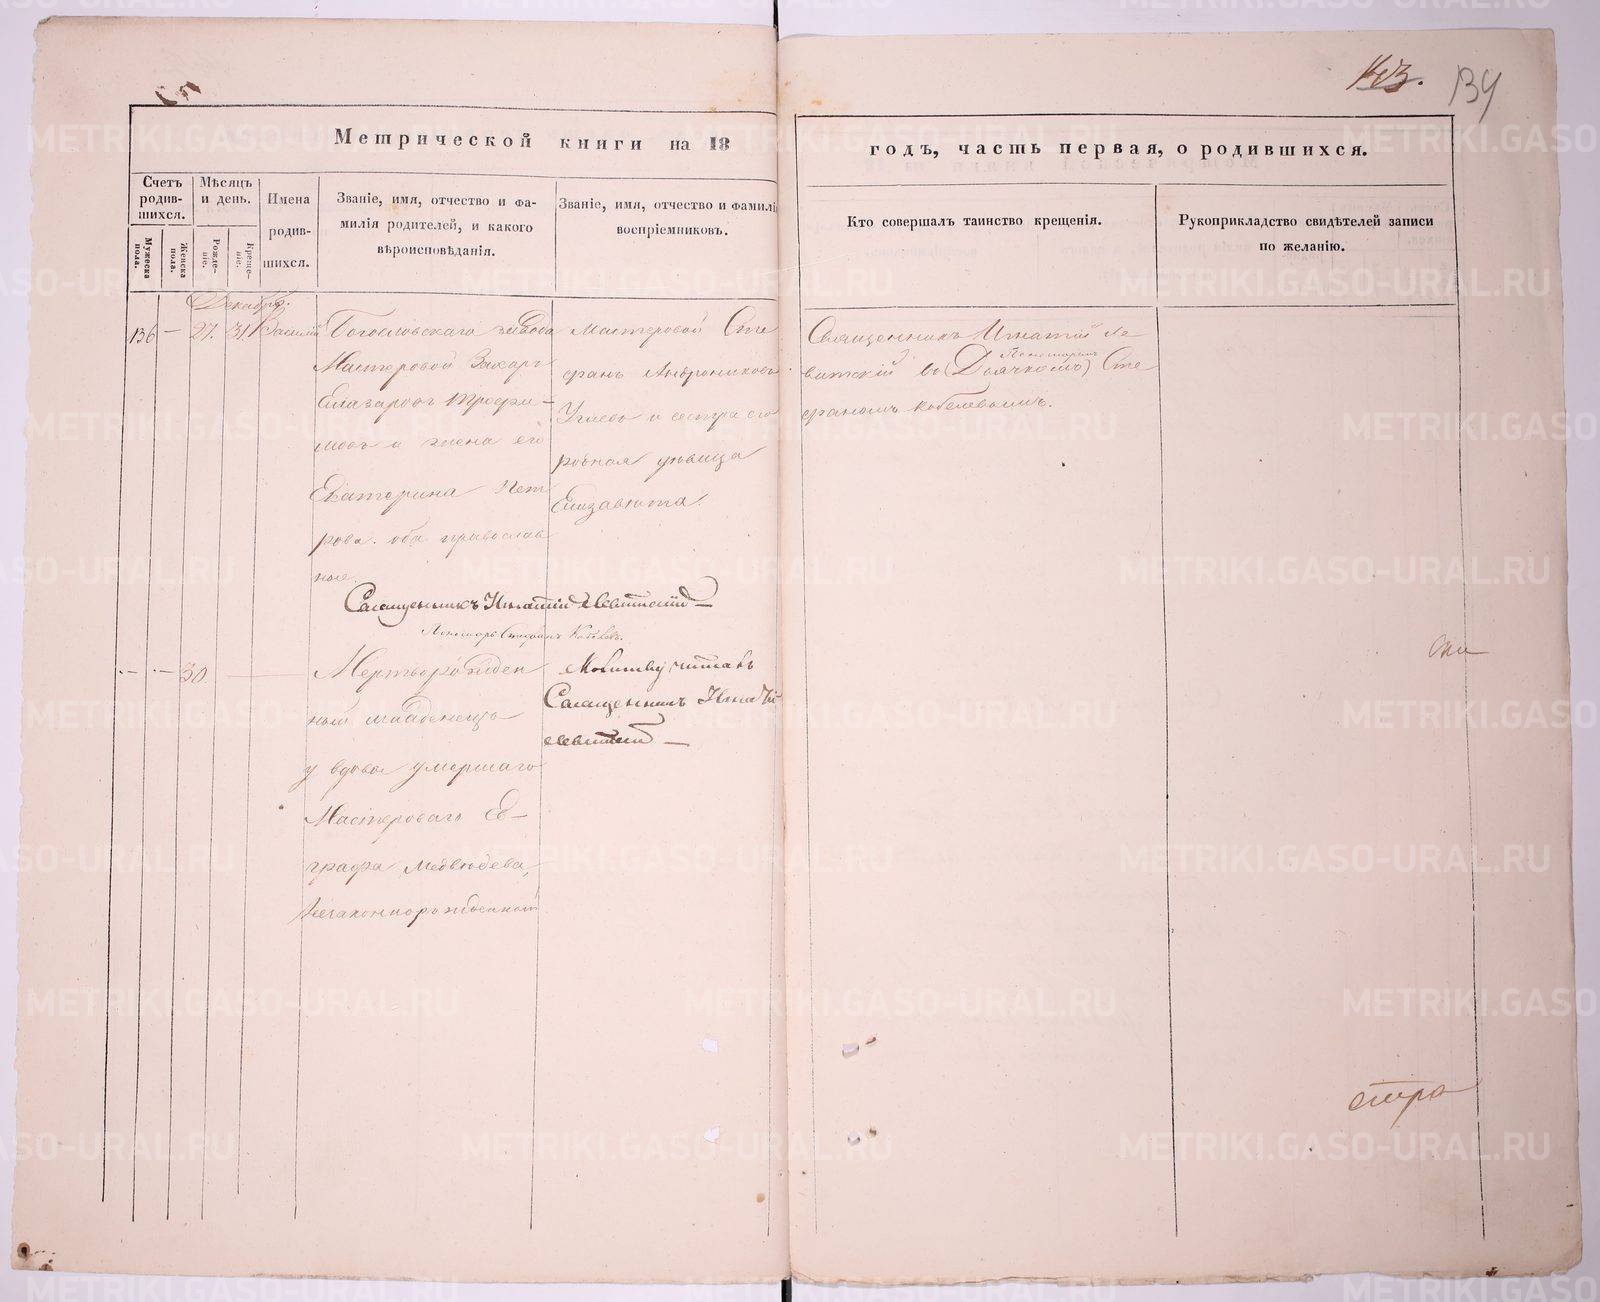 143.
134
Метрической книги на 18
годъ, часть первая, о родившихся.
Счетъ родив-
шихся.
Мужеска пола.
Женска пола.
Мѣсяцъ и день.
Рожде-
ніе.
Креще-
ніе.
Имена
родив-
шихся.
Званіе, имя, отчество и фа-
милія родителей, и какого
вѣроисповѣданія.
Званіе, имя, отчество и фамилі
воспріемниковъ.
Кто совершалъ таинство крещенія.
Рукоприкладство свидѣтелей записи
по желанію.
Декабрь.
136 — 27. 31. Василій
Богословскаго завода
Мастеровой Захаръ
Елазаровъ Трофи-
мовъ и жена его
Екатерина Пет
рова. оба православ
ные.
Мастеровой Сте
фанъ Андрониковъ
и сестра его
родная дѣвица
Елизавета.
Священникъ Игнатій Ле
витскій съ (Дьячкомъ) Сте
Пономаремъ
фаномъ Кобелевымъ.
Священникъ Игнатій Левитскій
Пономарь Стефанъ Кобелевъ.
— — 30.
Мертворожден
ный младенецъ
у вдовы умершаго
Мастероваго Ев-
графа Медвѣдева,
незаконнорожденный
Молитву читалъ
Священникъ Игнатій
Левитскій
METRIKI.GASO-URAL.RU